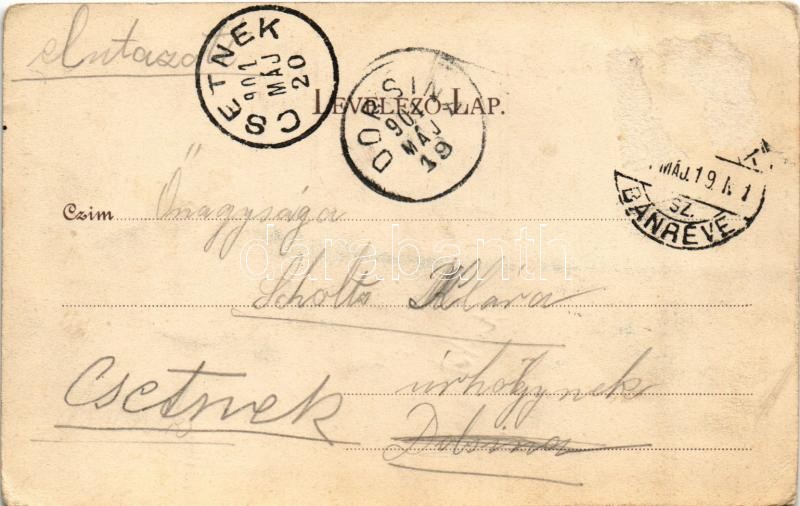 elutazott
CSETNEK
901
MÁJ
20
DOBSINA
901
MÁJ
19
LEVELEZŐ-LAP.
MÁJ. 19. N. 1
SZ.
BÁNRÉVE
Czim Őnagysága
darabanth
Scholtz Klára
úrhölgynek
Csetnek
Dobsina